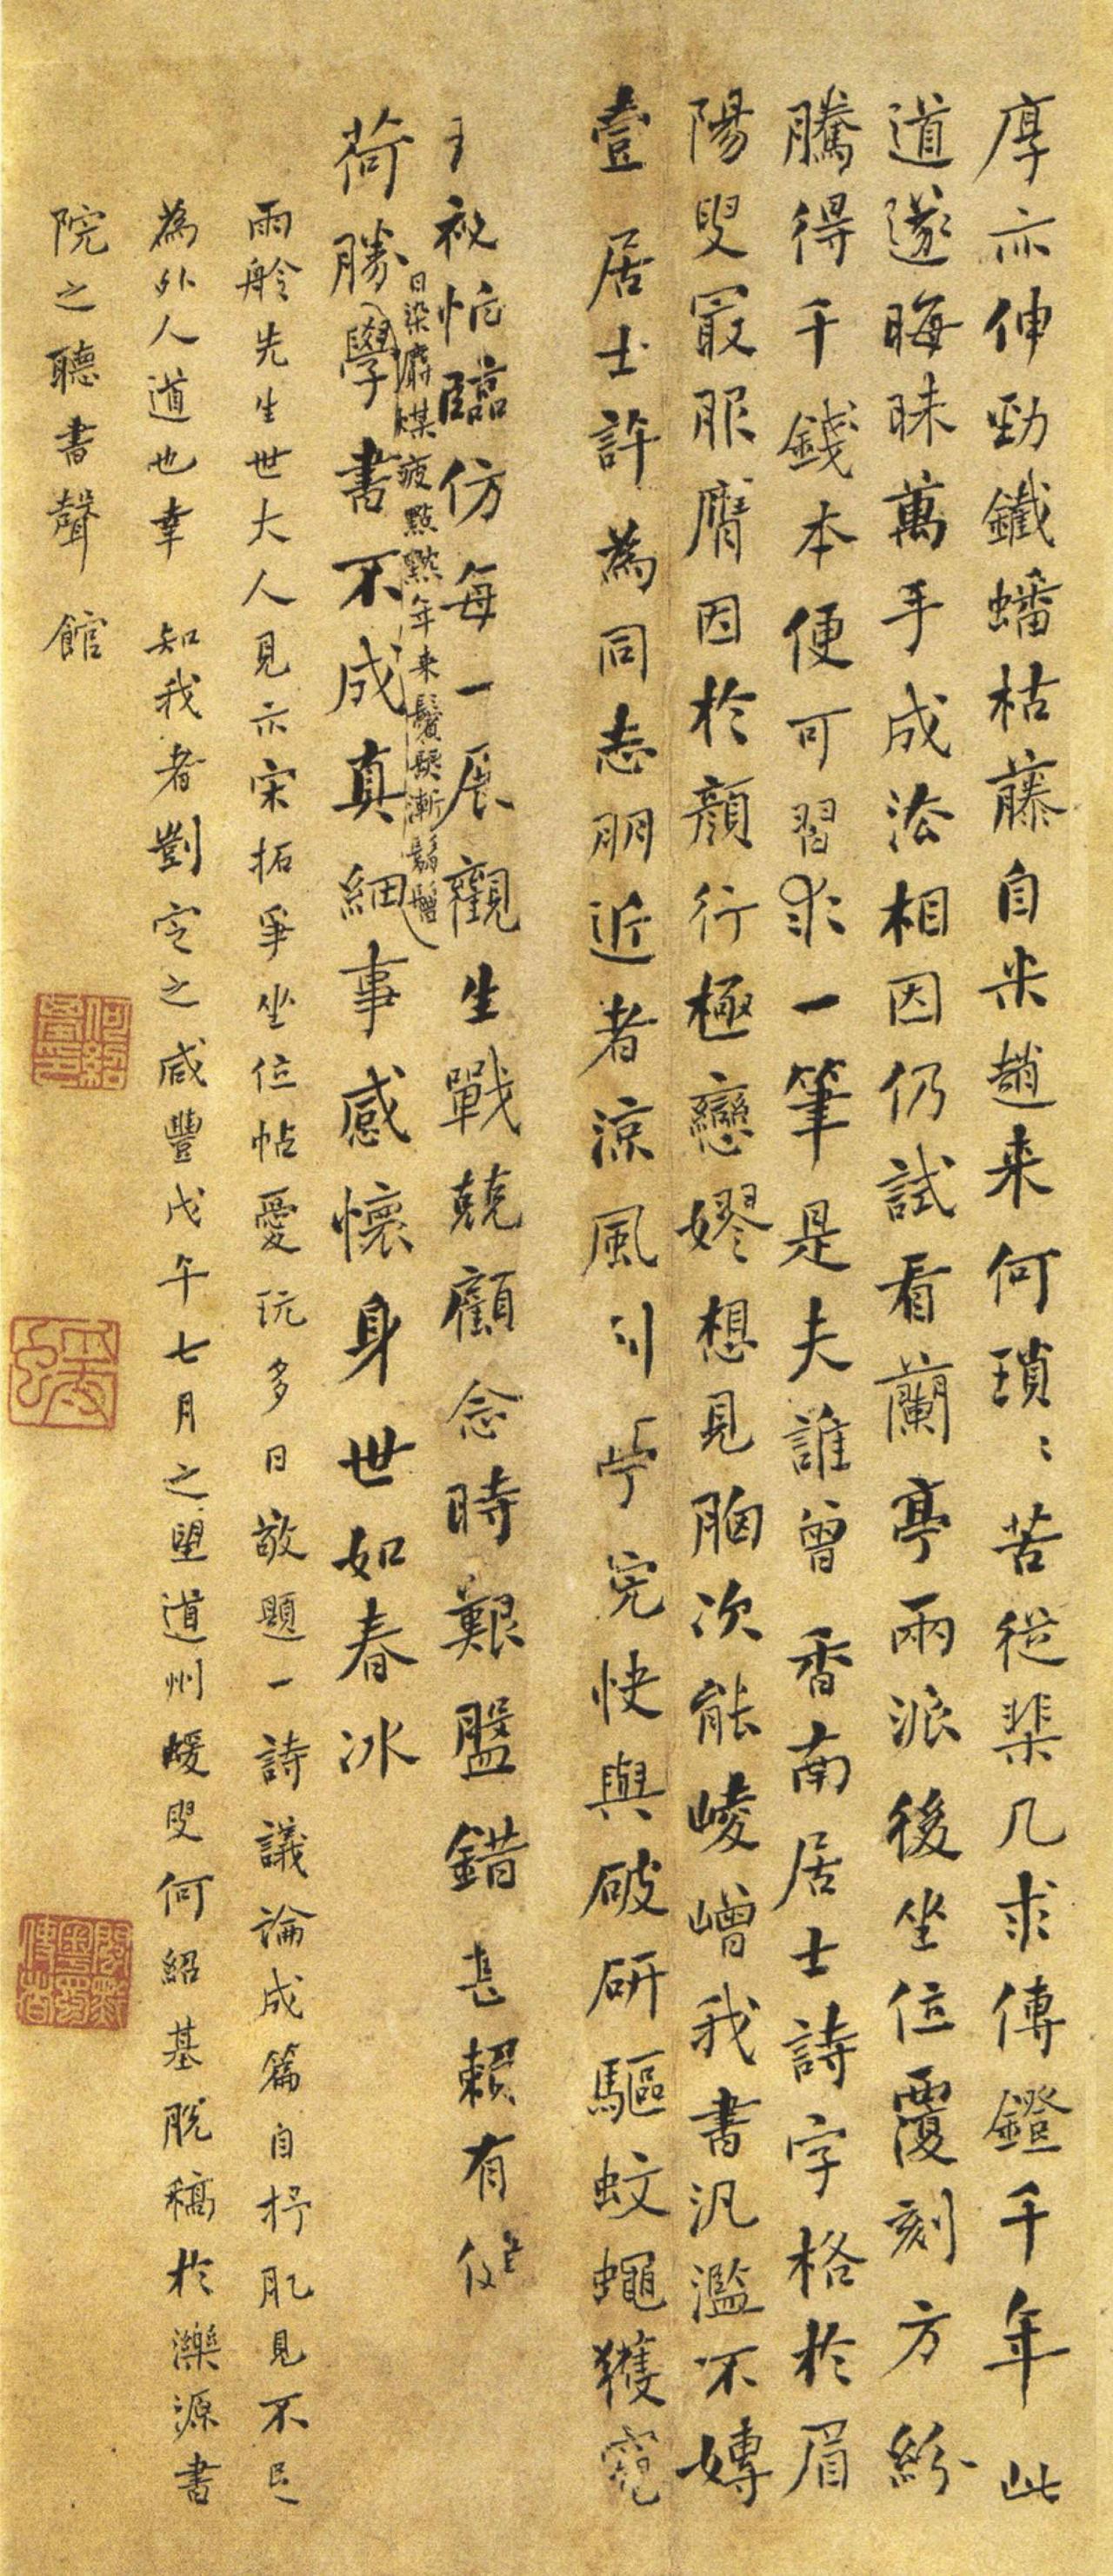 厚亦伸勁鐵蟠枯藤自米趙来何瑣〻苦從棐几求傳鐙千年此
道遂晦昧萬手成法相因仍試看蘭亭兩派後坐位覆刻方紛
騰得千錢本便可習求一筆是夫誰曾香南居士詩字格於眉
陽叟冣服膺因於顏行極戀嫪想見胸次能崚嶒我書汎濫不專
壹居士許為同志朋近者涼風刂岇突快與破研驅蚊蠅獲窺
秘忙臨仿每一展觀生戰兢顧念時艱盤錯甚賴有
日染麝煤疲點黙年来鬢髮漸鬅鬙
荷勝學書不成真細事感懷身世如春冰
雨舲先生世大人見示宋拓爭坐位帖愛玩多日敬題一詩議論成篇自抒肊見不足
為外人道也幸知我者劉定之咸豐戊午七月之望道州蝯叟何紹基脫稿於濼源書
院之聽書聲館
何紹基印
蝯叟